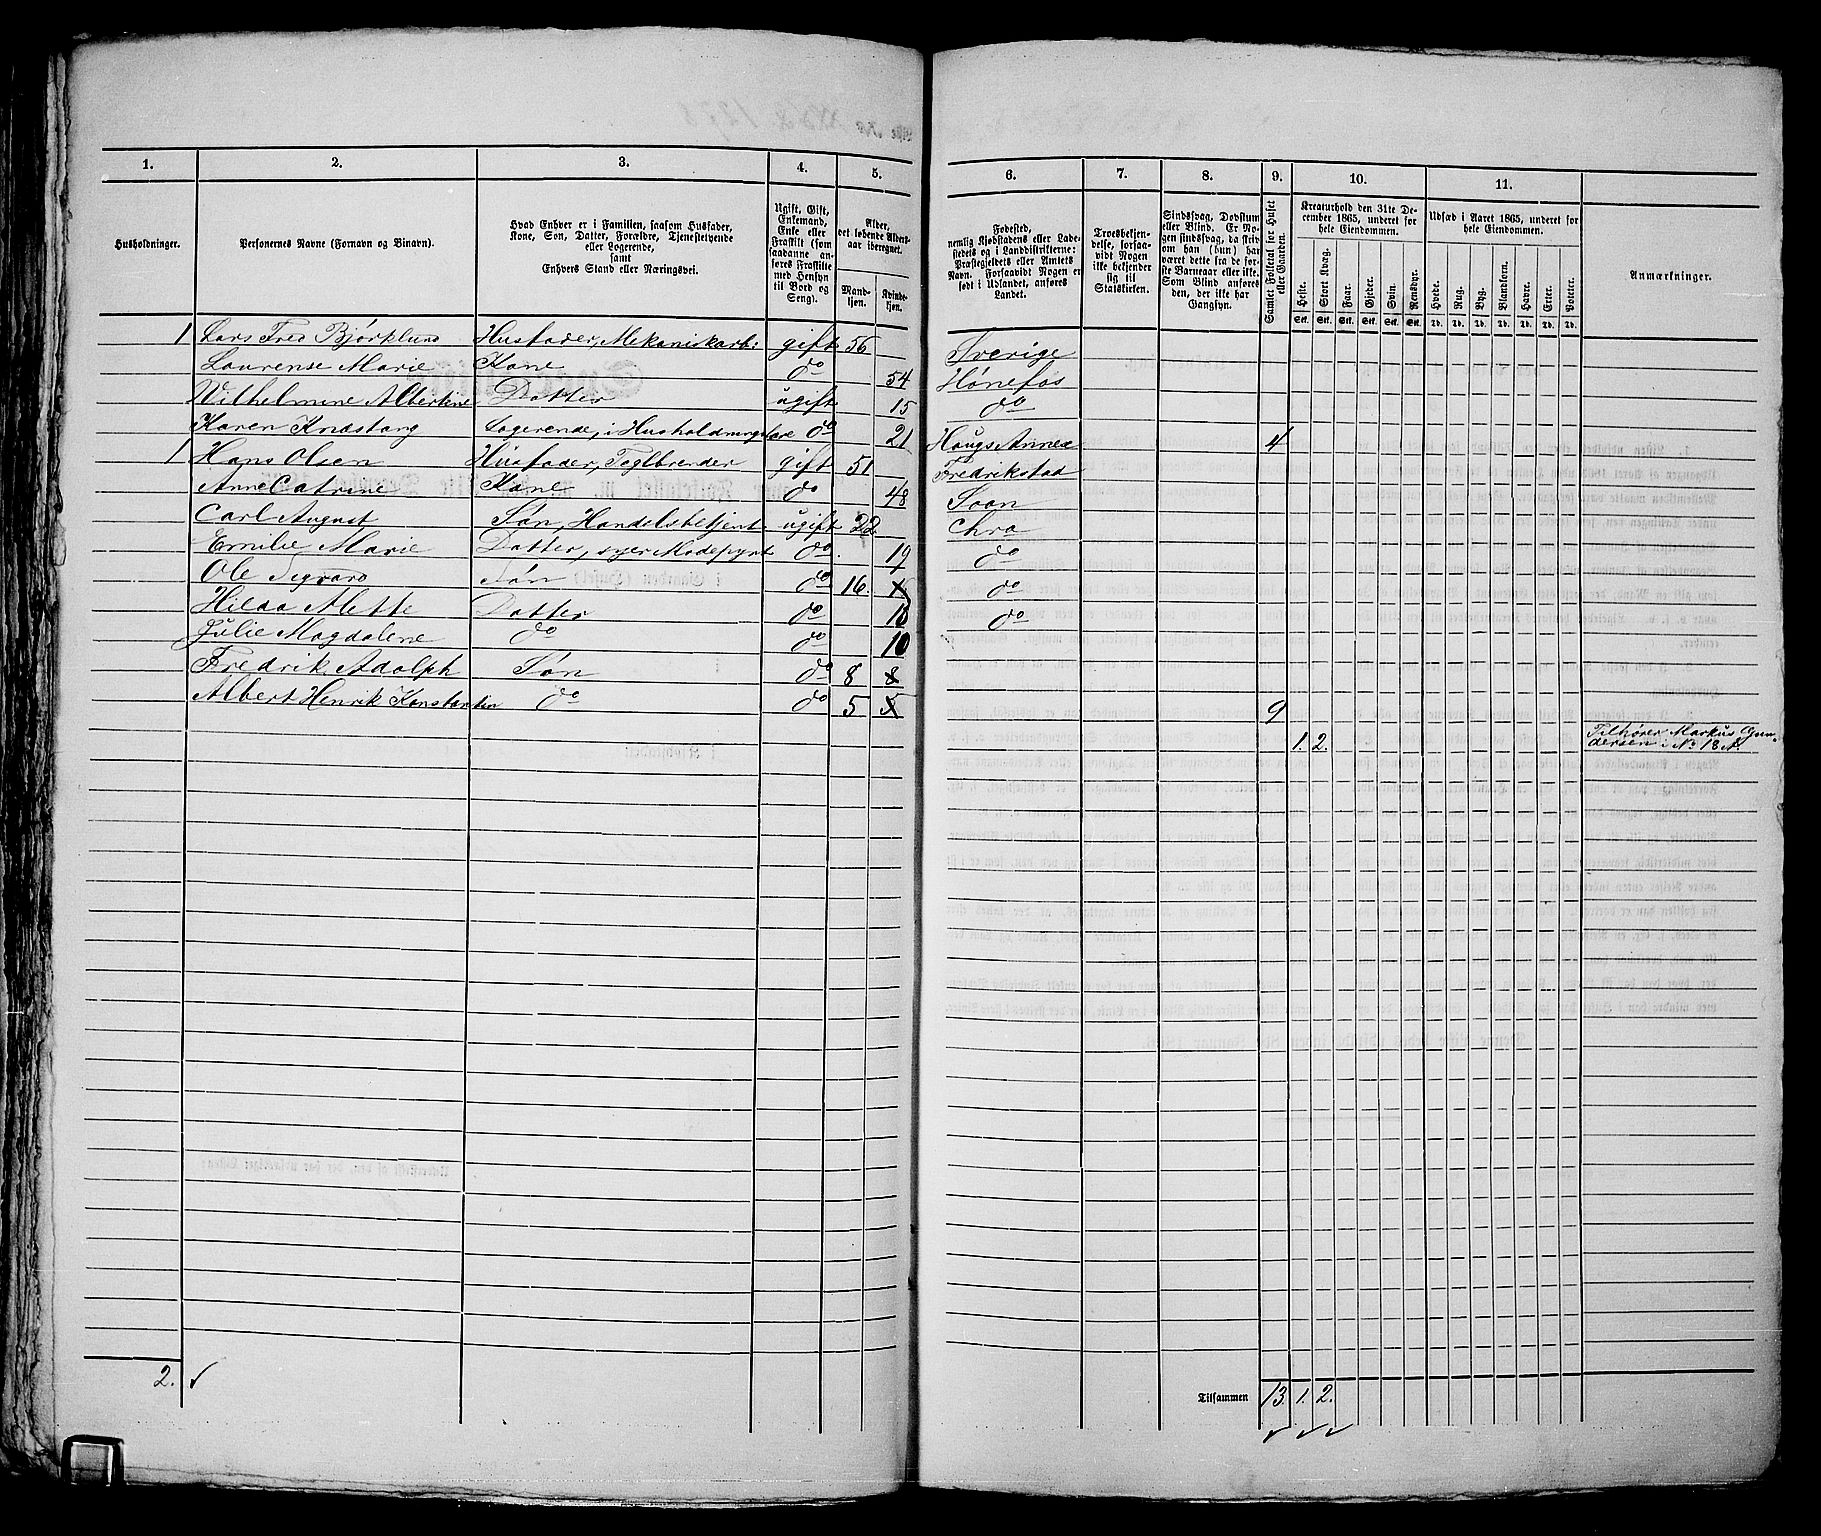 1. 2. 3. 4. 5. 6. 7. 8. 9. 10. 11.
Husholdninger.
Personernes Navne (Fornavn og Binavn).
Hvad Enhver er i Familien, saasom Husfader,
Kone, Søn, Datter, Forældre, Tjenestetyende
eller Logerende,
samt
Enhvers Stand eller Næringsvei.
Ugift, Gift,
Enkemand,
Enke eller
Fraskilt (som
saadanne an-
føres Fraskilte
med Hensyn
til Bord og
Seng).
Alder,
det løbende Alders-
aar iberegnet.
Mand-
kjøn.
Kvinde-
kjøn.
Fødested,
nemlig Kjøbstadens eller Lade-
stedets og i Landdistrikterne:
Præstegjeldets eller Amtets
Navn. Forsaavidt Nogen er
født i Udlandet, anføres
Landet.
Troesbekjen-
delse, forsaa-
vidt Nogen
ikke bekjender
sig til
Statskirken.
Sindssvag, Døvstum
eller Blind. Er No-
gen sindssvag, da skriv
om han (hun) har
været dette fra de før-
ste Barneaar eller ikke.
Som Blind anføres
den, der ikke har
Gangsyn.
Samlet Folketal for Huset
eller Gaarden.
Kreaturhold den 31te De-
cember 1865, underet for
hele Eiendommen.
Heste. Stort Kvæg. Faar. Gjeder. Svin. Rensdyr.
Stk. Stk. Stk. Stk. Stk. Stk.
Udsæd i Aaret 1865, underet for
hele Eiendommen.
Hvede. Rug. Byg. Blandkorn. Havre. Erter. Poteter.
Td. Td. Td. Td. Td. Td. Td.
Anmærkninger.
1 Lars Fred Bjørklund Husfader, Mekaniskarb: gift 56 Sverige
Laurense Marie Kone do 54 Hønefos
Vilhelmine Albertine Datter ugift 15 do
Karen Knæstang Logerende, i Husholdningslære do 21 Hougs Annex 4
1 Hans Olsen Husfader, Teglbrender gift 51 Fredrikstad
Anne Catrine Kone do 48 Soon
Carl August Søn, Handelsbetjent ugift 22 Chra
Emilie Marie Datter, syer Modepynt do 19 do
Ole Sigvard Søn do 16 do
Hilda Mette Datter do 15 do
Julie Magdalene do do 10
Fredrik Adolph Søn do 8 8
Albert Henrik Konstantin do do 5 5 9
1. 2. Tilhører Markus Gun-
dersen i No 18 A.
2. Tilsammen 13. 1. 2.